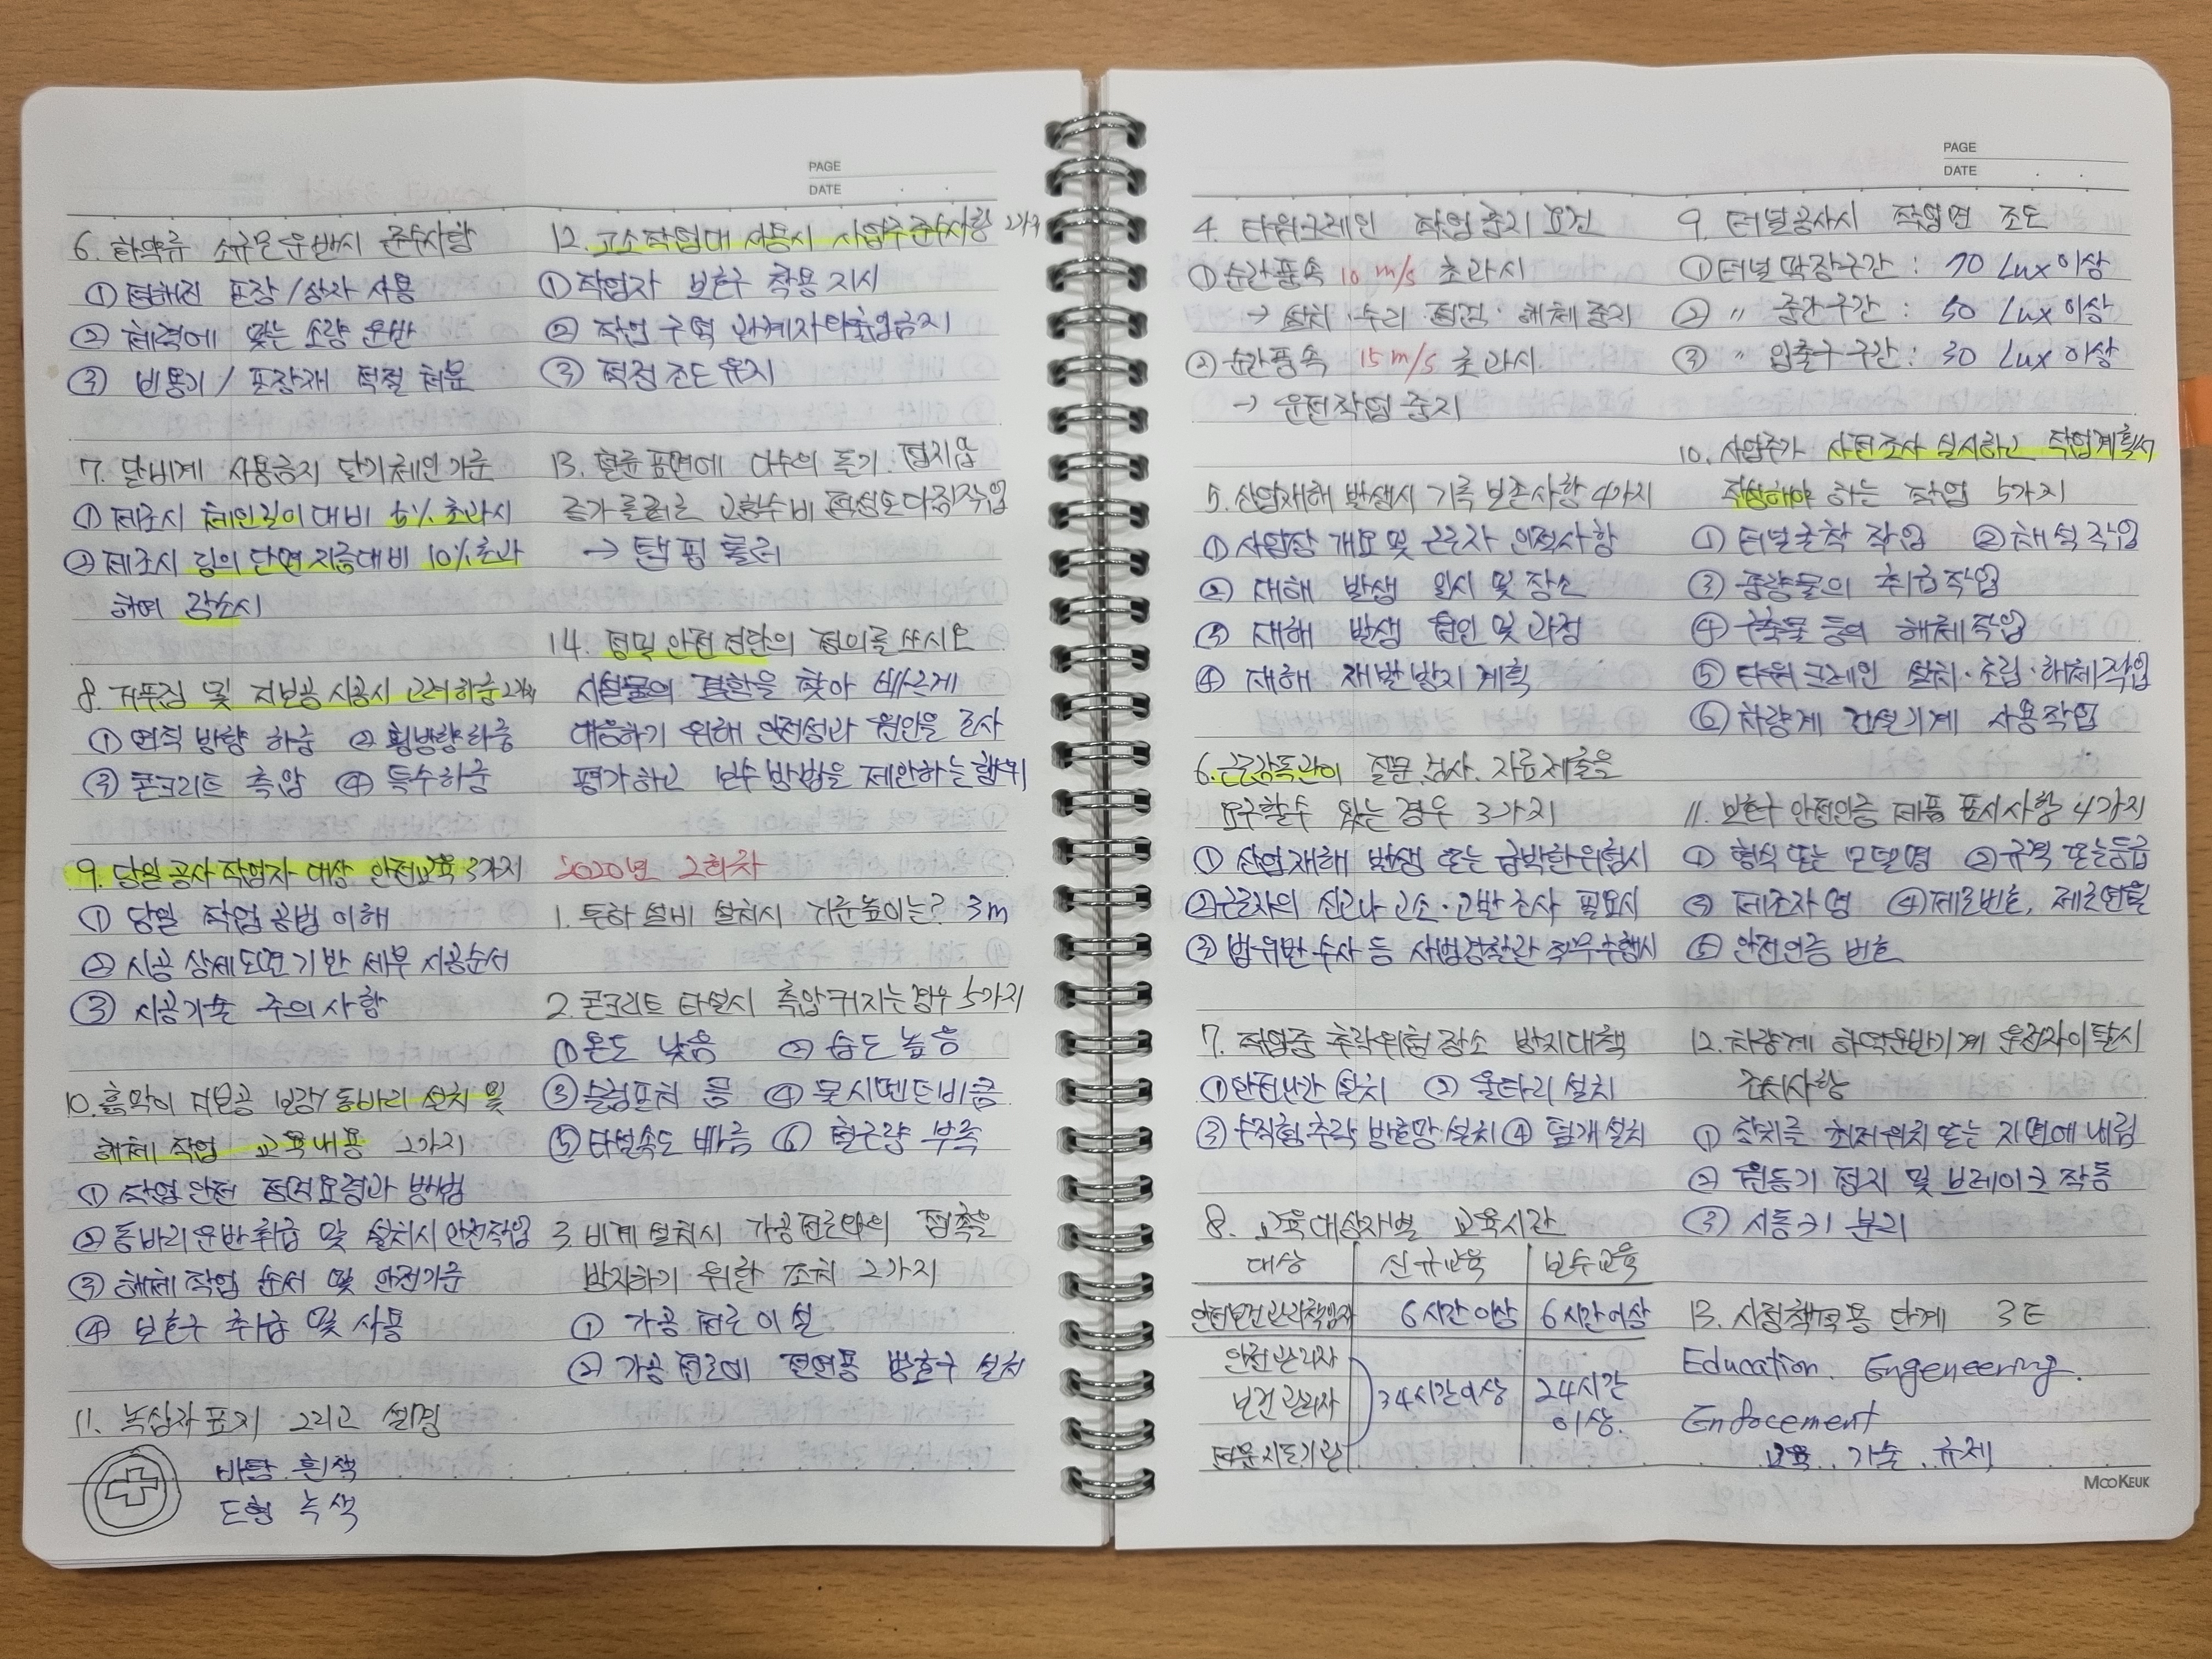 PAGE
DATE
6. 화약류 소규모 운반시 준수사항
① 정해진 포장/상자 사용
② 체력에 맞는 소량 운반
③ 빈용기/포장재 적절 처분
7. 달비계 사용금지 달기체인 기준
① 제조시 체인길이 대비 5% 초과시
② 제조시 링의 단면지름대비 10% 초과
하여 감소시
8. 거푸집 및 지보공 시공시 고려하중 2가지
① 연직 방향 하중 ② 횡방향 하중
③ 콘크리트 측압 ④ 특수하중
9. 당일 공사 작업자 대상 안전교육 3가지
① 당일 작업 공법 이해
② 시공 상세도면 기반 세부 시공순서
③ 시공기술 주의사항
10. 흙막이 지보공 보강/동바리 설치 및
해체 작업 교육내용 2가지
① 작업안전 점검요령과 방법
② 동바리 운반취급 및 설치시 안전작업
③ 해체작업 순서 및 안전기준
④ 보호구 취급 및 사용
11. 녹십자 표지 그리고 설명
바탕 흰색
도형 녹색
12. 고소작업대 사용시 사업주 준수사항 2가지
① 작업자 보호구 착용 지시
② 작업 구역 관계자외출입금지
③ 적정 조도 유지
13. 철륜 표면에 다수의 돌기. 접지압
증가 롤러로 고함수비 점성토 다짐작업
→ 탬핑 롤러
14. 정밀 안전 진단의 정의를 쓰시오
시설물의 결함을 찾아 빠르게
대응하기 위해 안전성과 원인을 조사
평가하고 보수 방법을 제안하는 행위
2020년 2회차
1. 투하 설비 설치시 기준 높이는? 3m
2. 콘크리트 타설시 측압 커지는 경우 5가지
① 온도 낮음 ② 습도 높음
③ 슬럼프치 큼 ④ 물시멘트비 큼
⑤ 타설속도 빠름 ⑥ 철근량 부족
3. 비계 설치시 가공전로와의 접촉을
방지하기 위한 조치 2가지
① 가공 전로 이설
② 가공 전로에 절연용 방호구 설치
PAGE
DATE
4. 타워크레인 작업중지 요건
① 순간풍속 10 m/s 초과시
→ 설치·수리·점검·해체 중지
② 순간풍속 15 m/s 초과시
→ 운전작업 중지
5. 산업재해 발생시 기록 보존사항 4가지
① 사업장 개요 및 근로자 인적사항
② 재해 발생 일시 및 장소
③ 재해 발생 원인 및 과정
④ 재해 재발방지 계획
6. 근로감독관이 질문, 검사, 자료제출을
요구할수 있는 경우 3가지
① 산업재해 발생 또는 급박한 위험시
② 근로자의 신고나 고소·고발 조사 필요시
③ 법위반 수사 등 사법경찰관 직무수행시
7. 작업중 추락위험 장소 방지대책
① 안전난간 설치 ② 울타리 설치
③ 수직형 추락 방호망 설치 ④ 덮개 설치
8. 교육대상자별 교육시간
대상 신규교육 보수교육
안전보건관리책임자 6시간 이상 6시간 이상
안전관리자
보건관리자 34시간 이상 24시간
이상.
전문지도기관
9. 터널공사시 작업면 조도
① 터널 막장구간 : 70 Lux 이상
② 〃 중간구간 : 50 Lux 이상
③ 〃 입출구 구간 : 30 Lux 이상
10. 사업주가 사전조사 실시하고 작업계획서
작성해야 하는 작업 5가지
① 터널굴착 작업 ② 채석작업
③ 중량물의 취급작업
④ 구축물 등의 해체작업
⑤ 타워크레인 설치·조립·해체작업
⑥ 차량계 건설기계 사용작업
11. 보호구 안전인증 제품 표시사항 4가지
① 형식 또는 모델명 ② 규격 또는 등급
③ 제조자 명 ④ 제조번호, 제조연월
⑤ 안전인증 번호
12. 차량계 하역운반기계 운전자 이탈시
조치사항
① 장치를 최저위치 또는 지면에 내림
② 원동기 정지 및 브레이크 작동
③ 시동키 분리
13. 시정책 적용 단계 3E
Education. Engeneering.
Enfocement
교육. 기술. 규제
MOOKEUK